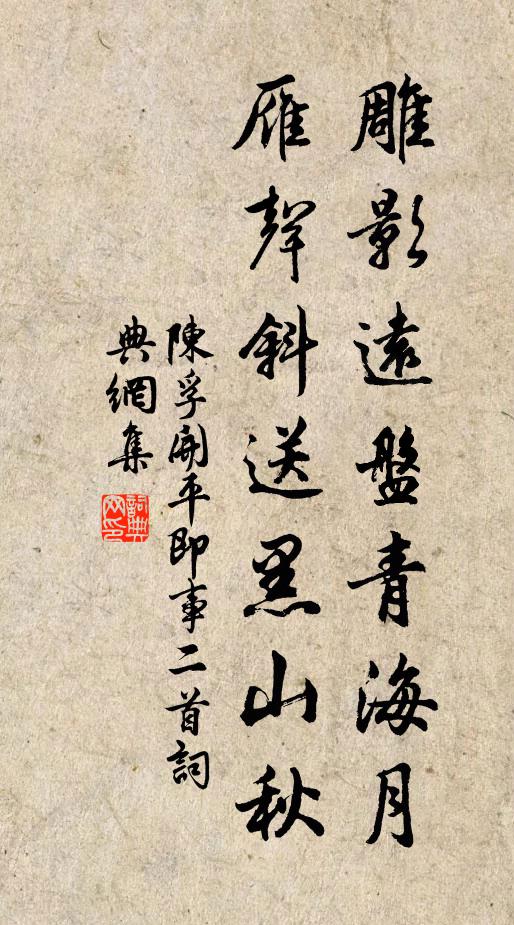 雕影遠盤青海月
雁聲斜送黑山秋
陳孚開平即事二首詞
典網集
詞典
网印